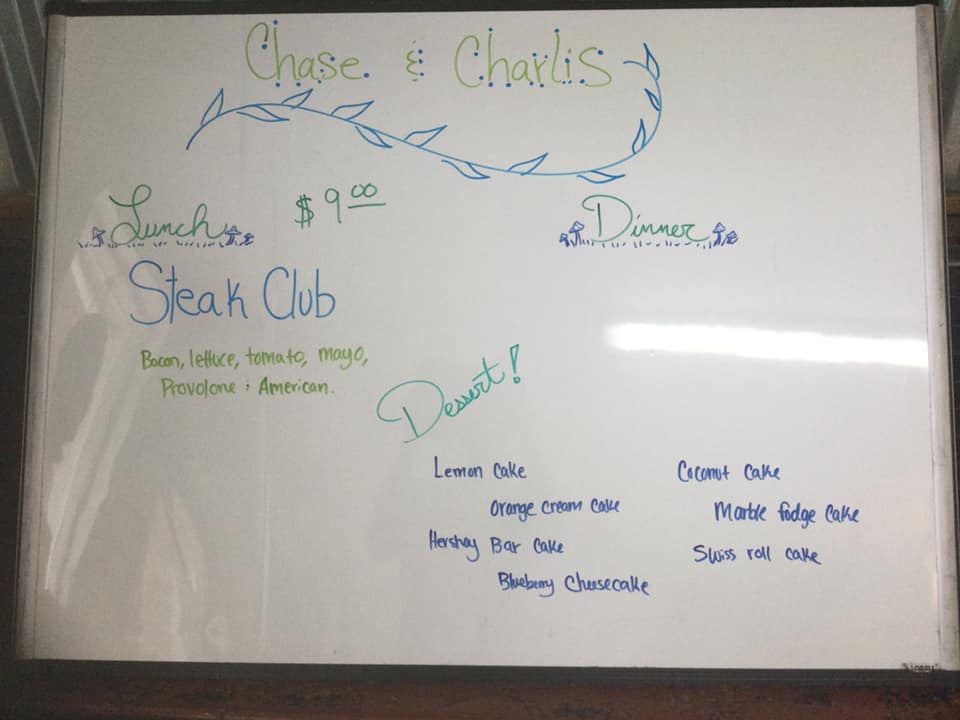 Chase & Charlis
Lunch $9.00
Dinner
Steak Club
Bacon, lettuce, tomato, mayo,
Provolone & American.
Dessert!
Lemon Cake
Orange cream cake
Hershey Bar Cake
Blueberry Cheesecake
Coconut Cake
Marble fudge Cake
Swiss roll cake